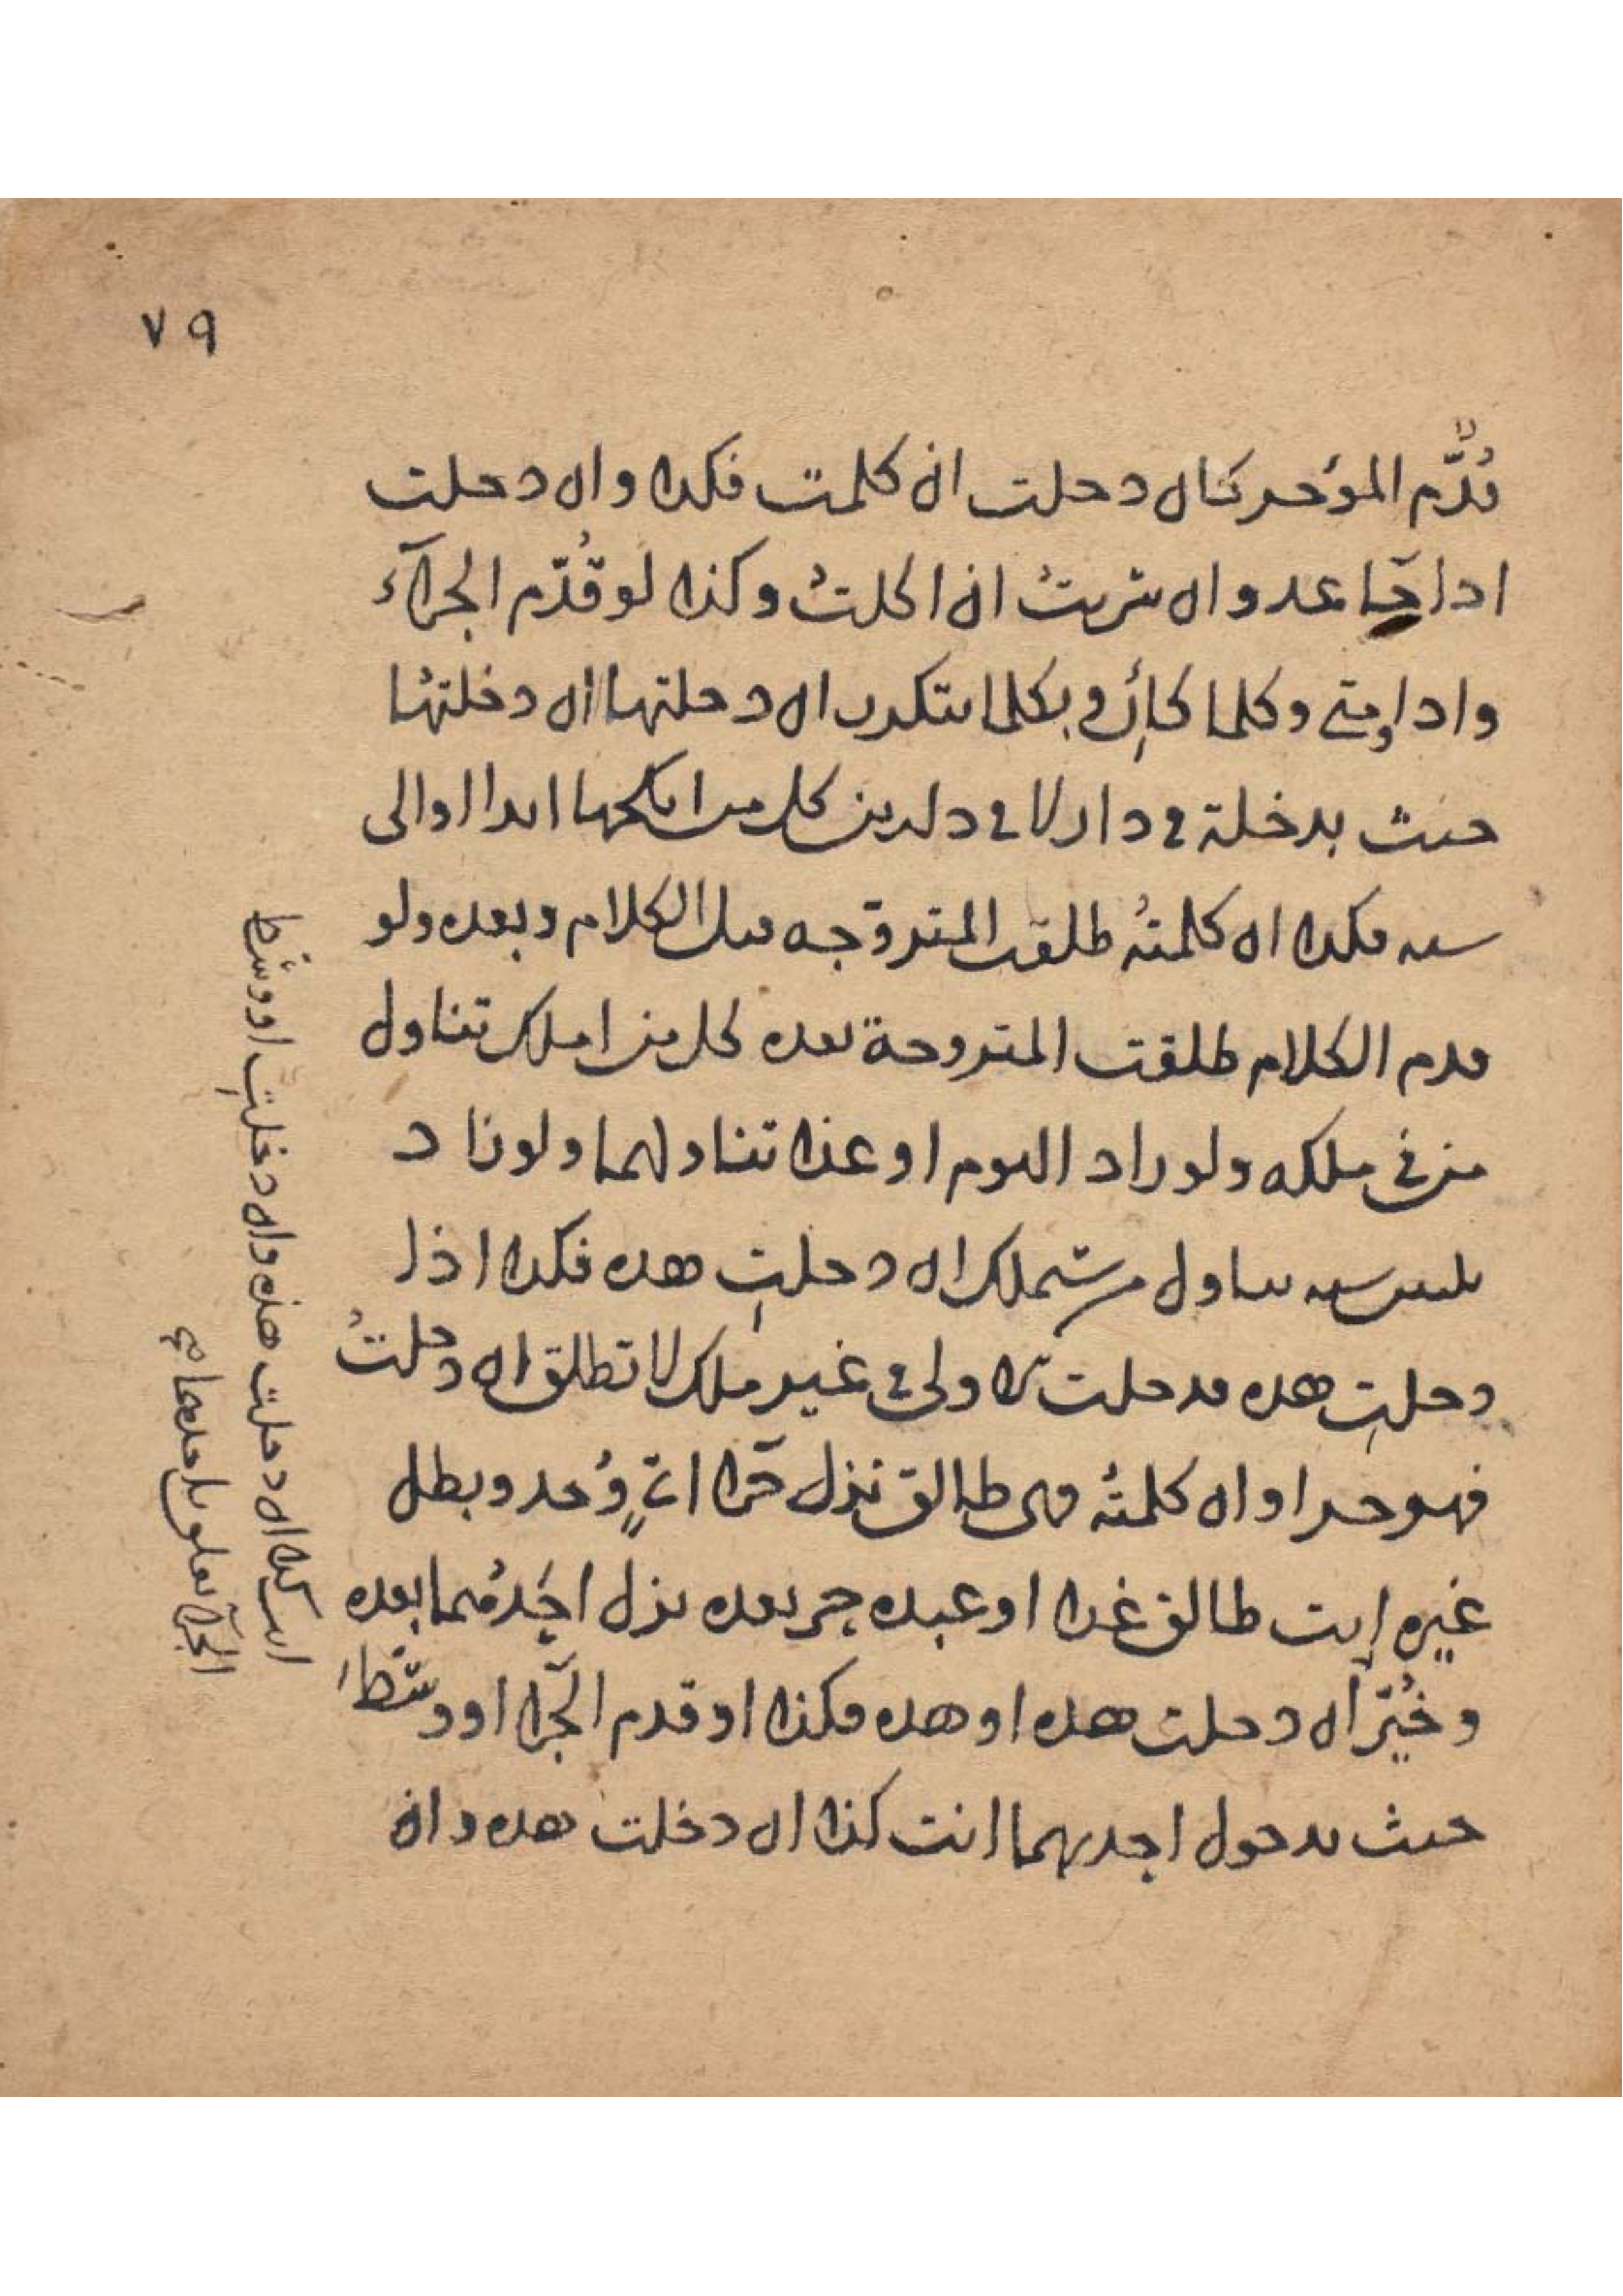 ٧٩
قُدِّم المؤخر كان دخلت ان كلمت فكذا وان دخلت
اذا جا غد وان شربت ان اكلت وكذا لو قُدّم الجزاء
واذا ومتى وكلما كإن وبكلما يتكرر ان دخلتها ان دخلتها
حنث بدخلة في دار لا في دارين كل من انكحها ابدا او الى
سنه فكذا ان كلمته طلقت المتزوجه قبل الكلام وبعده ولو
قدم الكلام طلقت المتزوجة بعده كل من املك تناول
من في ملكه ولو زاد اليوم او غدا تناولهما ولو زا د
ثلثين سنه تناول من يستملك ان دخلتِ هذه فكذا اذا
دخلتِ هذه فدخلت الاولى في غير ملك لا تطلق ان دخلتُ
فهو حر او ان كلمته فهي طالق نزل جزا اي وُجد وبطل
غيره انت طالق غدا او عبده حر بعده نزل احدُهما بعده
وخُيّر ان دخلت هذه او هذه فكذا او قدم الجزا او وسَّط
حنث بدخول احديهما انت كذا ان دخلت هذه وان
انت كذا ان دخلت هذه وان دخلتِ او وسّط
الجزا تعلق باحدهما